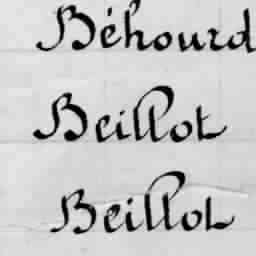 Béhourd
Beillot
Beillot